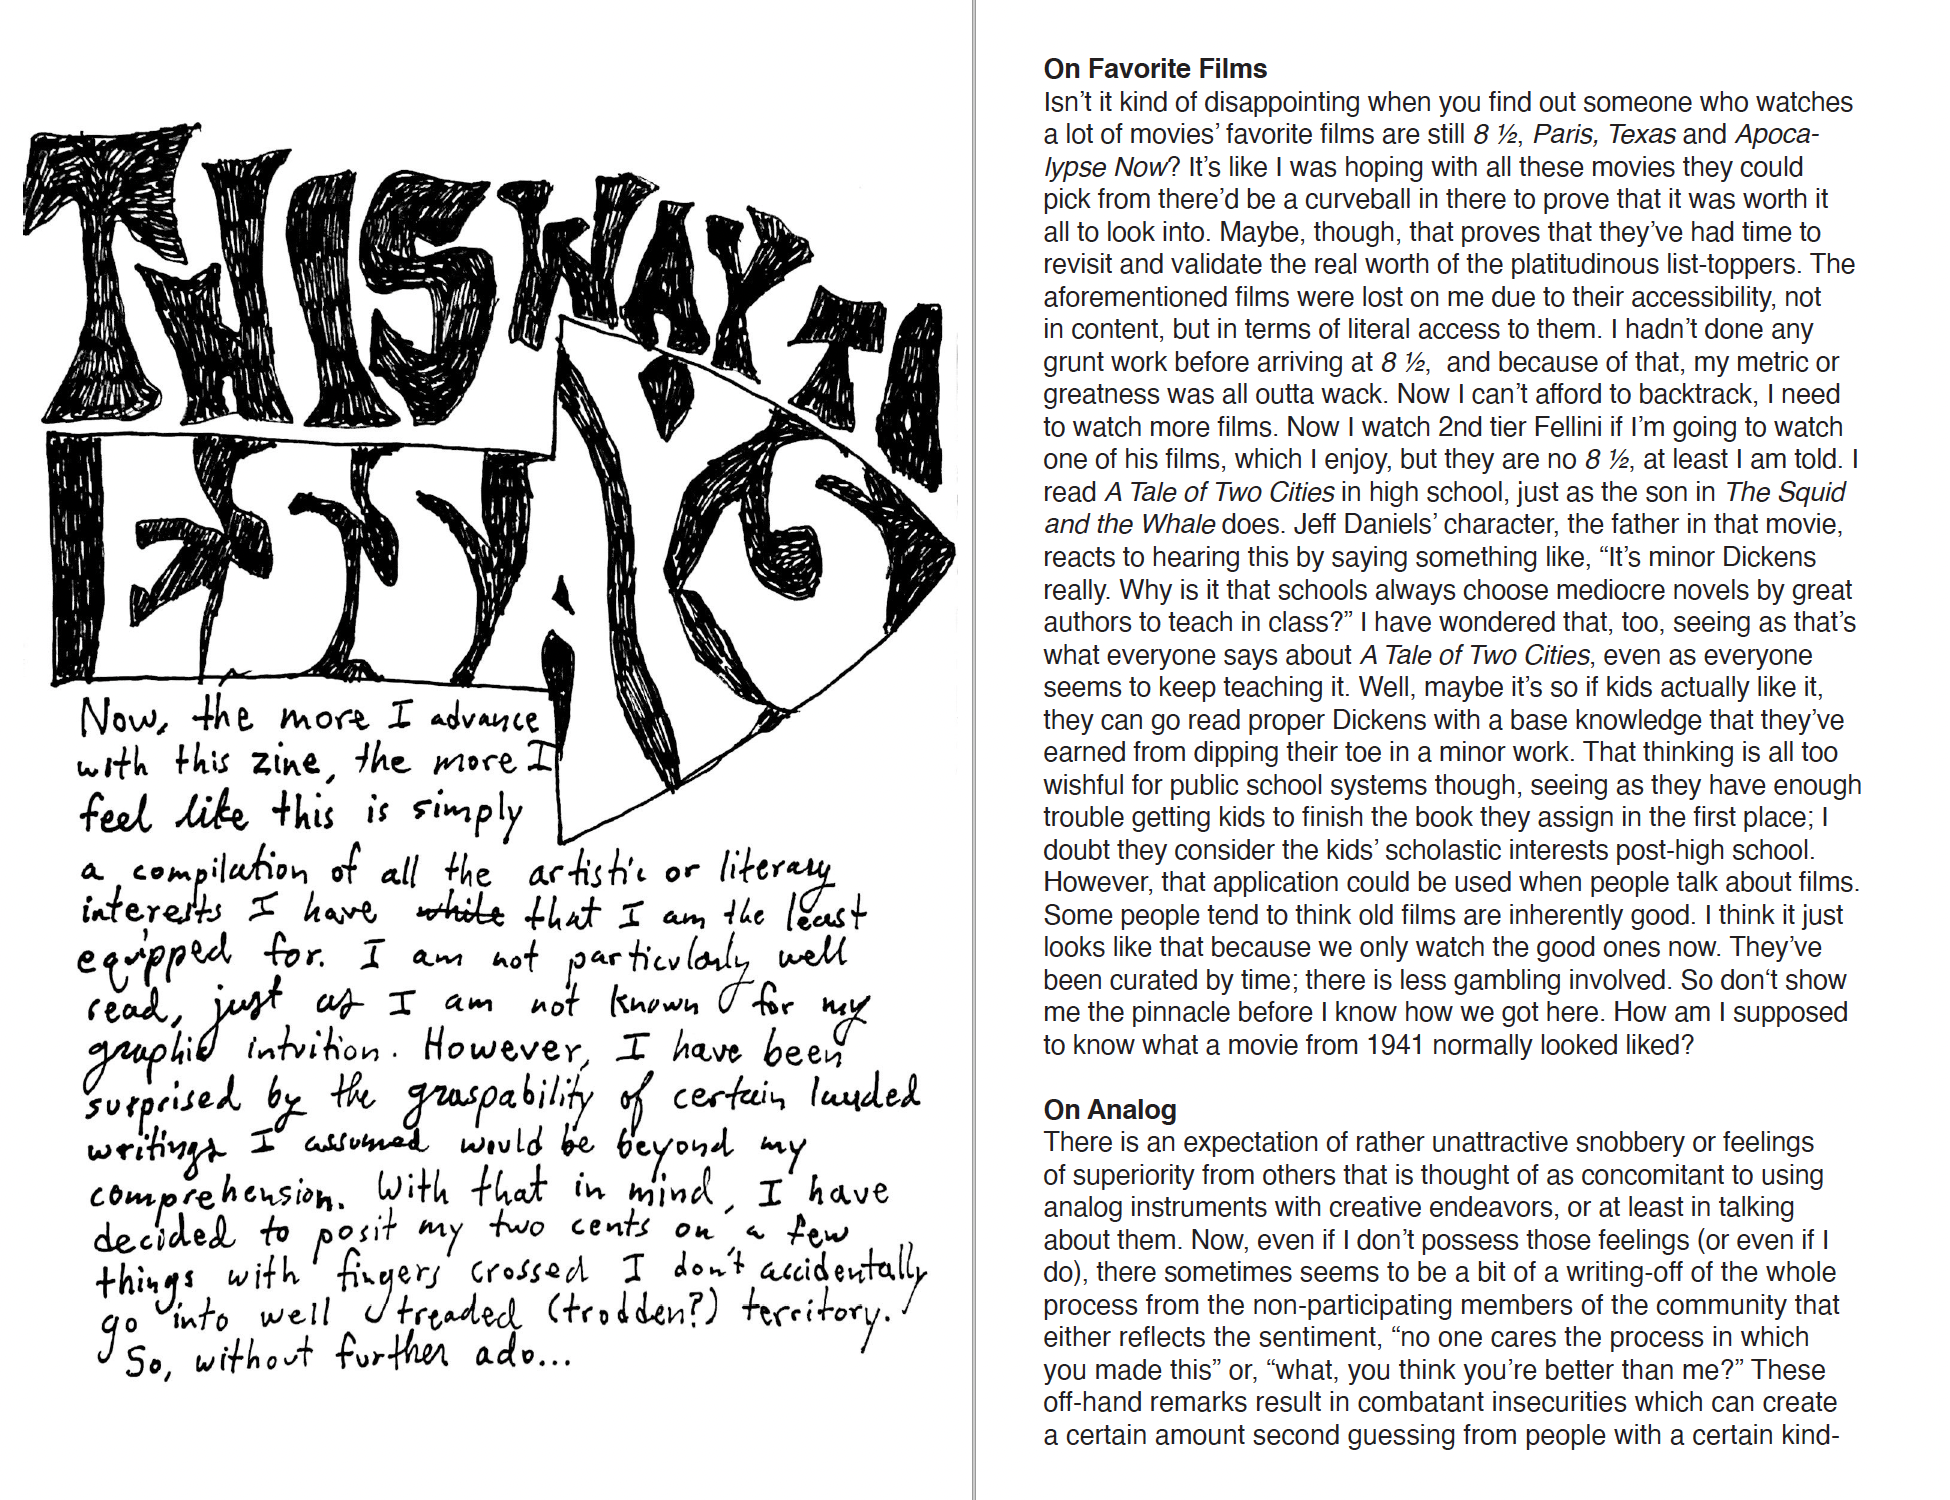 THIS WAY TO
ESSAYS
Now, the more I advance
with this zine, the more I
feel like this is simply
a compilation of all the artistic or literary
interests I have while that I am the least
equipped for. I am not particularly well
read, just as I am not known for my
graphic intuition. However, I have been
surprised by the graspability of certain lauded
writings I assumed would be beyond my
comprehension. With that in mind, I have
decided to posit my two cents on a few
things with fingers crossed I don't accidentally
go into well treaded (trodden?) territory.
So, without further ado...
On Favorite Films
Isn’t it kind of disappointing when you find out someone who watches
a lot of movies’ favorite films are still 8 ½, Paris, Texas and Apoca-
lypse Now? It’s like I was hoping with all these movies they could
pick from there’d be a curveball in there to prove that it was worth it
all to look into. Maybe, though, that proves that they’ve had time to
revisit and validate the real worth of the platitudinous list-toppers. The
aforementioned films were lost on me due to their accessibility, not
in content, but in terms of literal access to them. I hadn’t done any
grunt work before arriving at 8 ½,  and because of that, my metric or
greatness was all outta wack. Now I can’t afford to backtrack, I need
to watch more films. Now I watch 2nd tier Fellini if I’m going to watch
one of his films, which I enjoy, but they are no 8 ½, at least I am told. I
read A Tale of Two Cities in high school, just as the son in The Squid
and the Whale does. Jeff Daniels’ character, the father in that movie,
reacts to hearing this by saying something like, “It’s minor Dickens
really. Why is it that schools always choose mediocre novels by great
authors to teach in class?” I have wondered that, too, seeing as that’s
what everyone says about A Tale of Two Cities, even as everyone
seems to keep teaching it. Well, maybe it’s so if kids actually like it,
they can go read proper Dickens with a base knowledge that they’ve
earned from dipping their toe in a minor work. That thinking is all too
wishful for public school systems though, seeing as they have enough
trouble getting kids to finish the book they assign in the first place; I
doubt they consider the kids’ scholastic interests post-high school.
However, that application could be used when people talk about films.
Some people tend to think old films are inherently good. I think it just
looks like that because we only watch the good ones now. They’ve
been curated by time; there is less gambling involved. So don‘t show
me the pinnacle before I know how we got here. How am I supposed
to know what a movie from 1941 normally looked liked?
On Analog
There is an expectation of rather unattractive snobbery or feelings
of superiority from others that is thought of as concomitant to using
analog instruments with creative endeavors, or at least in talking
about them. Now, even if I don’t possess those feelings (or even if I
do), there sometimes seems to be a bit of a writing-off of the whole
process from the non-participating members of the community that
either reflects the sentiment, “no one cares the process in which
you made this” or, “what, you think you’re better than me?” These
off-hand remarks result in combatant insecurities which can create
a certain amount second guessing from people with a certain kind-